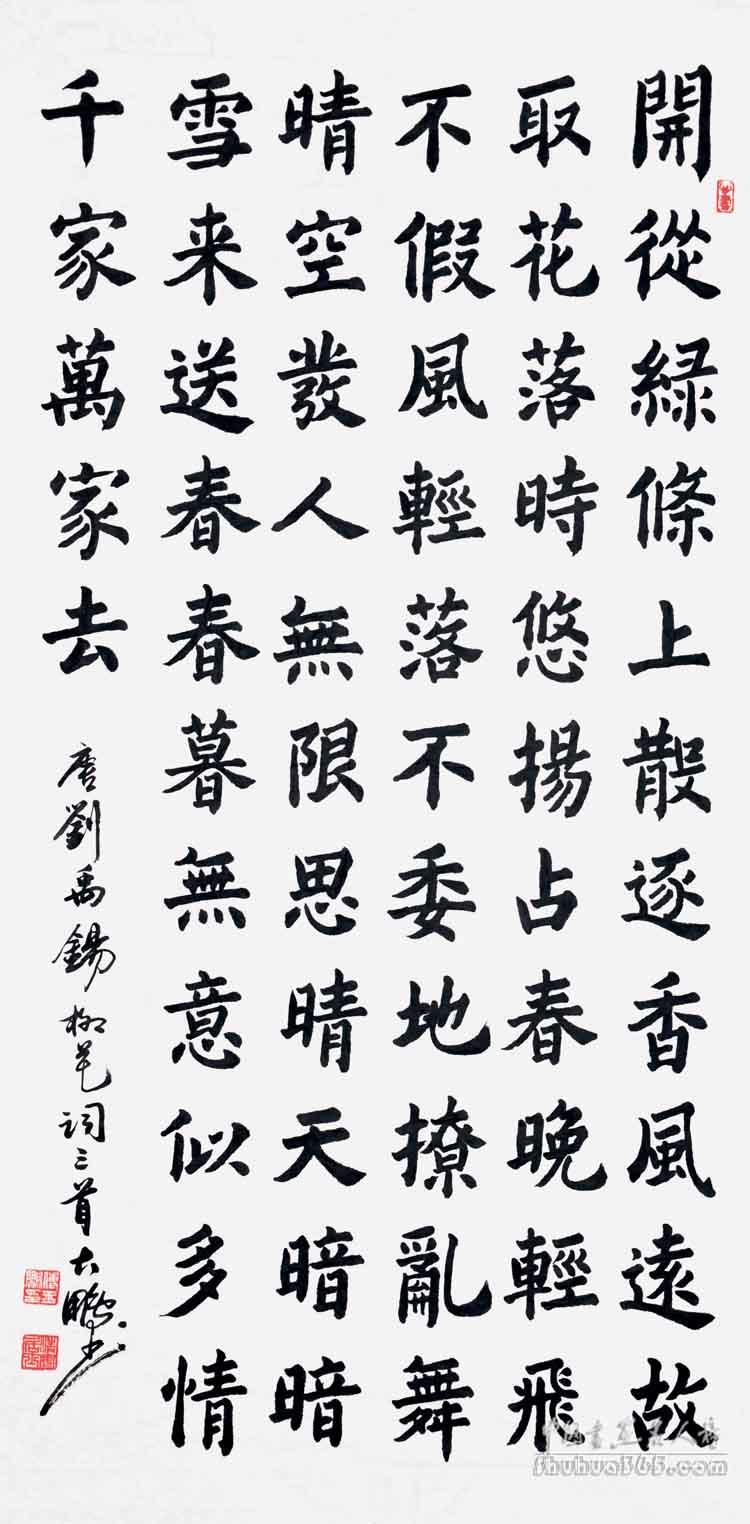 開從緑條上散逐香風遠故
取花落時悠揚占春晚輕飛
不假風輕落不委地撩亂舞
晴空發人無限思晴天暗暗
雪来送春春暮無意似多情
千家萬家去
唐劉禹錫柳花词三首大鵬书
shuhua365.com